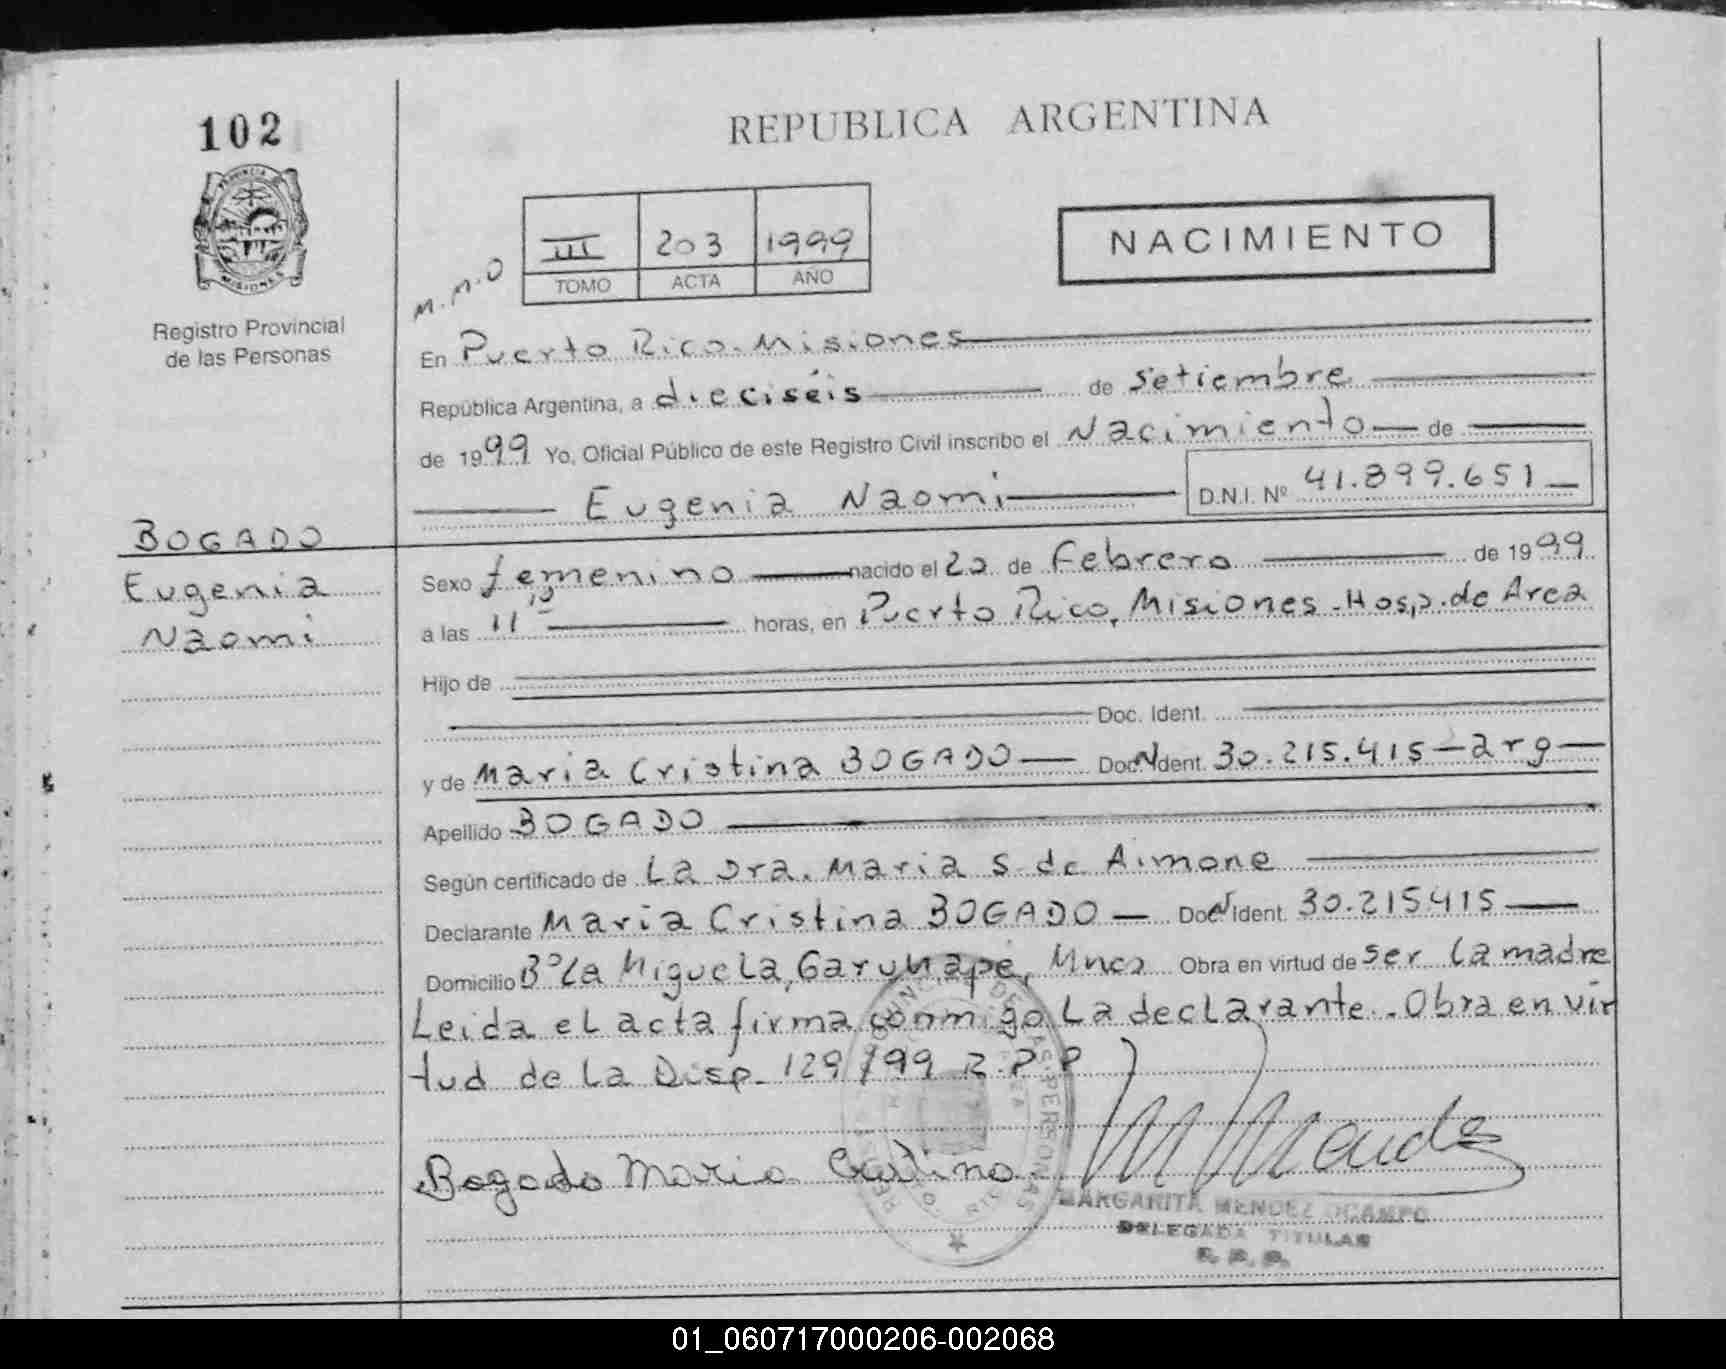 102
REPUBLICA ARGENTINA
PROVINCIA
MISIONES
Registro Provincial
de las Personas
M.M.O
III 203 1999
TOMO ACTA AÑO
NACIMIENTO
En Puerto Rico. Misiones
República Argentina, a dieciséis de setiembre
de 1999 Yo, Oficial Público de este Registro Civil inscribo el Nacimiento de
Eugenia Naomi D.N.I. Nº 41.899.651
BOGADO
Eugenia
Naomi
Sexo femenino nacido el 20 de Febrero de 1999
a las 11 10 horas, en Puerto Rico, Misiones. Hosp. de Area
Hijo de
Doc. Ident.
y de Maria Cristina BOGADO Doc. Ident. 30.215.415 - arg
Apellido BOGADO
Según certificado de La Dra. Maria S. de Aimone
Declarante Maria Cristina BOGADO Doc. Ident. 30.215415
Domicilio Bº La Miguela, Garuhapé, Mnes Obra en virtud de ser la madre
Leida el acta firma conmigo La declarante. Obra en vir
tud de La Disp. 129/99 R.P.P
Bogado Maria Cristina
M Mendez
MARGARITA MENDEZ OCAMPO
DELEGADA TITULAR
R. P. P.
01_060717000206-002068